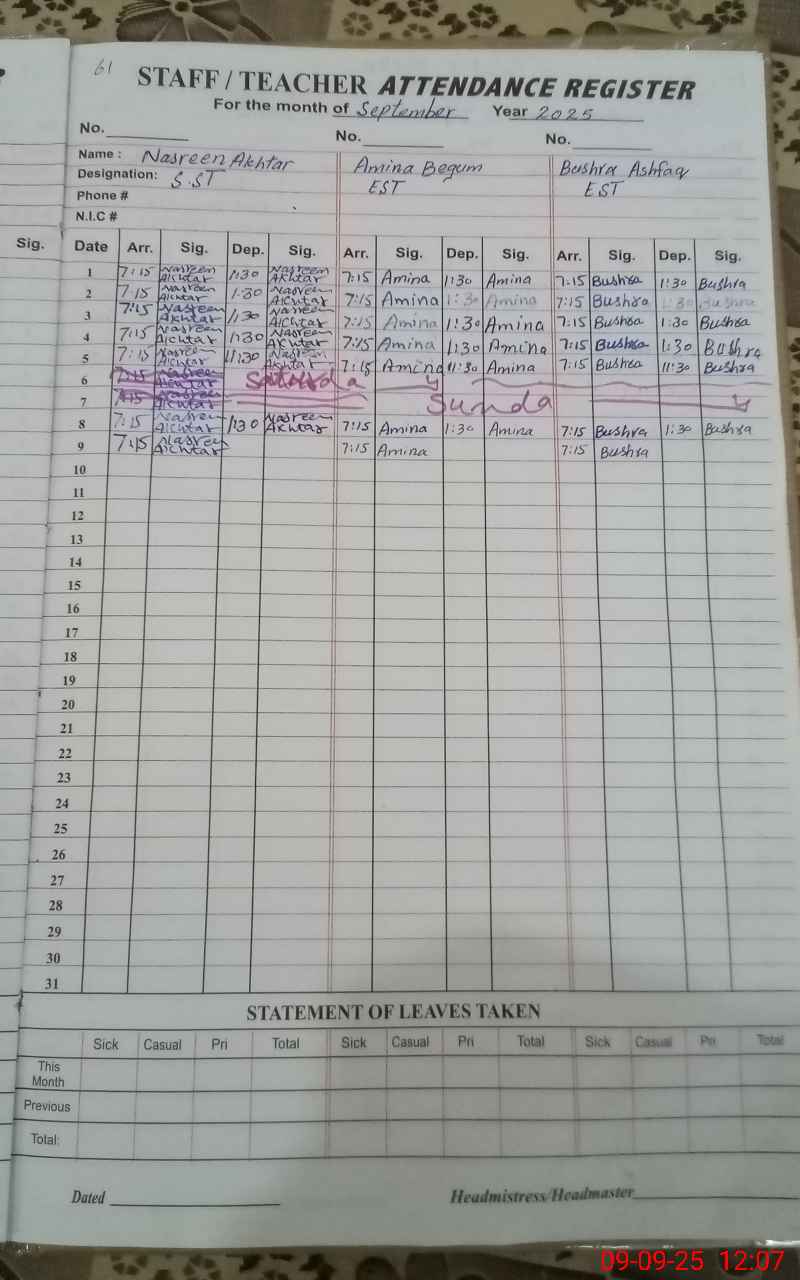 61
STAFF / TEACHER ATTENDANCE REGISTER
For the month of September Year 2025
No. No. No.
Name : Nasreen Akhtar Amina Begum Bushra Ashfaq
Designation: S.ST EST EST
Phone #
N.I.C #
Sig. Date Arr. Sig. Dep. Sig. Arr. Sig. Dep. Sig. Arr. Sig. Dep. Sig.
1 7:15 Nasreen Akhtar 1:30 Nasreen Akhtar 7:15 Amina 1:30 Amina 7:15 Bushra 1:30 Bushra
2 7:15 Nasreen Akhtar 1:30 Nasreen Akhtar 7:15 Amina 1:30 Amina 7:15 Bushra 1:30 Bushra
3 7:15 Nasreen Akhtar 1:30 Nasreen Akhtar 7:15 Amina 1:30 Amina 7:15 Bushra 1:30 Bushra
4 7:15 Nasreen Akhtar 1:30 Nasreen Akhtar 7:15 Amina 1:30 Amina 7:15 Bushra 1:30 Bushra
5 7:15 Nasreen Akhtar 11:30 Nasreen Akhtar 7:15 Amina 11:30 Amina 7:15 Bushra 11:30 Bushra
6 7:15 Nasreen Akhtar
7 7:15 Nasreen Akhtar Sunda
8 7:15 Nasreen Akhtar 1:30 Nasreen Akhtar 7:15 Amina 1:30 Amina 7:15 Bushra 1:30 Bushra
9 7:15 Nasreen Akhtar 7:15 Amina 7:15 Bushra
10
11
12
13
14
15
16
17
18
19
20
21
22
23
24
25
26
27
28
29
30
31
STATEMENT OF LEAVES TAKEN
Sick Casual Pri Total Sick Casual Pri Total Sick Casual Pri Total
This Month
Previous
Total:
Dated Headmistress/Headmaster
09-09-25 12:07